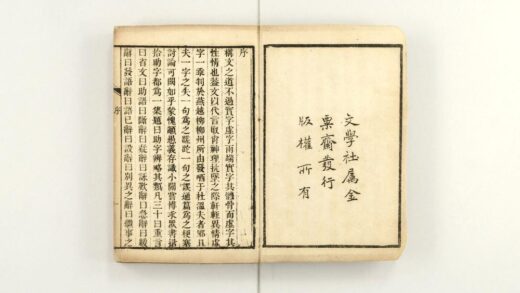 文學社屬金
粟齋發行
版權所有
序
構文之道不過實字虛字兩端實字其體骨而虛字其
性情也蓋文以代言取肖神理抗墜之際軒輊異情虛
字一乖判於燕越柳柳州所由發哂于杜溫夫者邪且
夫一字之失一句爲之蹉跎一句之誤通篇爲之梗塞
討論可闕如乎蒙愧顓愚義存識小閒嘗博求衆書捃
拾助字都爲一集題曰助字辨略其類凡三十曰重言
曰省文曰助語曰斷辭曰疑辭曰詠歎辭曰急辭曰緩
辭曰發語辭曰語已辭曰設辭曰別異之辭曰繼事之
序